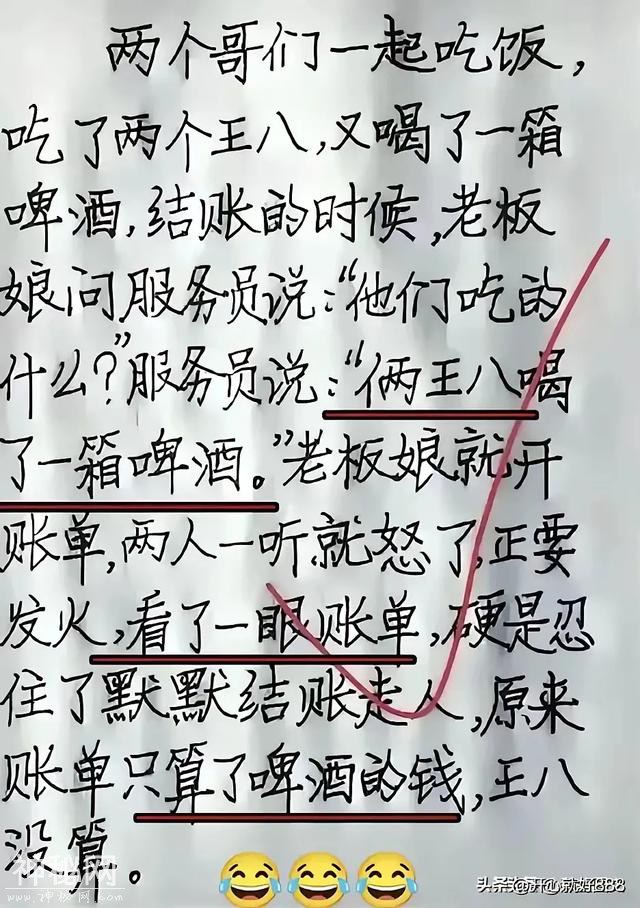 两个哥们一起吃饭，
吃了两个王八，又喝了一箱
啤酒，结账的时候，老板
娘问服务员说：“他们吃的
什么？”服务员说：“俩王八喝
了一箱啤酒。”老板娘就开
账单，两人一听就怒了，正要
发火，看了一眼账单，硬是忍
住了默默结账走人，原来
账单只算了啤酒的钱，王八
没算。
神秘网
www.
头条@开心就好888